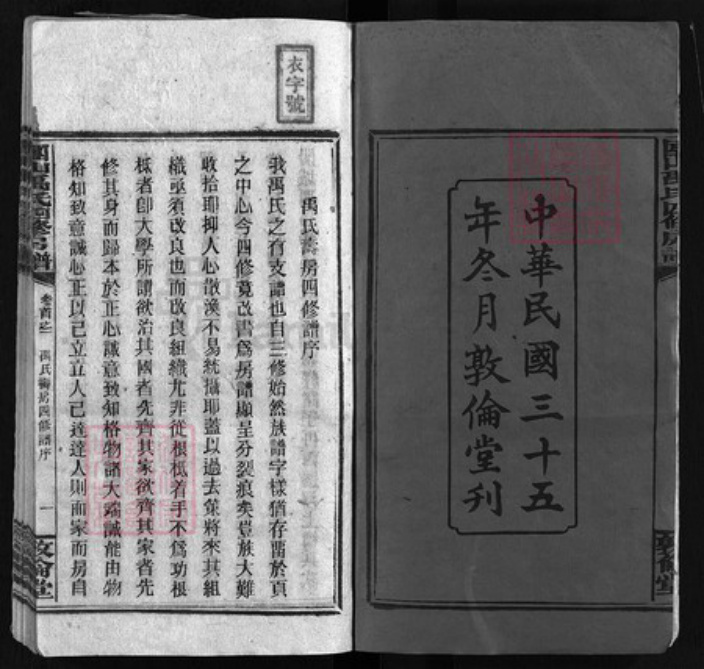 中華民國三十五
年冬月敦倫堂刊
衣字號
禹氏壽房四修譜序
我禹氏之有支譜也自三修始然族譜字樣猶存畱於頁
之中心今四修竟改書爲房譜顯呈分裂痕矣豈族大難
收拾耶抑人心散渙不易統攝耶蓋以過去策將來其組
織亟須改良也而改良組織尤非從根柢着手不爲功根
柢者卽大學所謂欲治其國者先齊其家欲齊其家者先
修其身而歸本於正心誠意致知格物諸大端誠能由物
格知致意誠心正以己立立人己達達人則而家而房自
卷首之一
禹氏壽房四修譜序
一
敦倫堂